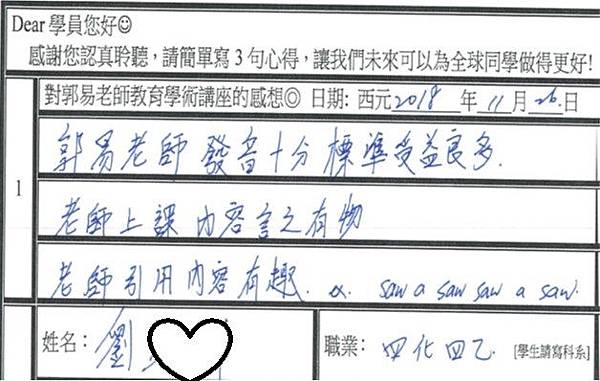 Dear 學員您好☺
感謝您認真聆聽，請簡單寫 3 句心得，讓我們未來可以為全球同學做得更好!
對郭易老師教育學術講座的感想◎ 日期: 西元2018年11月26日
1
郭易老師 發音十分標準受益良多.
老師上課 內容言之有物
老師引用內容有趣. ex. saw a saw saw a saw.
姓名: 劉
職業: 四化四乙 [學生請寫科系]